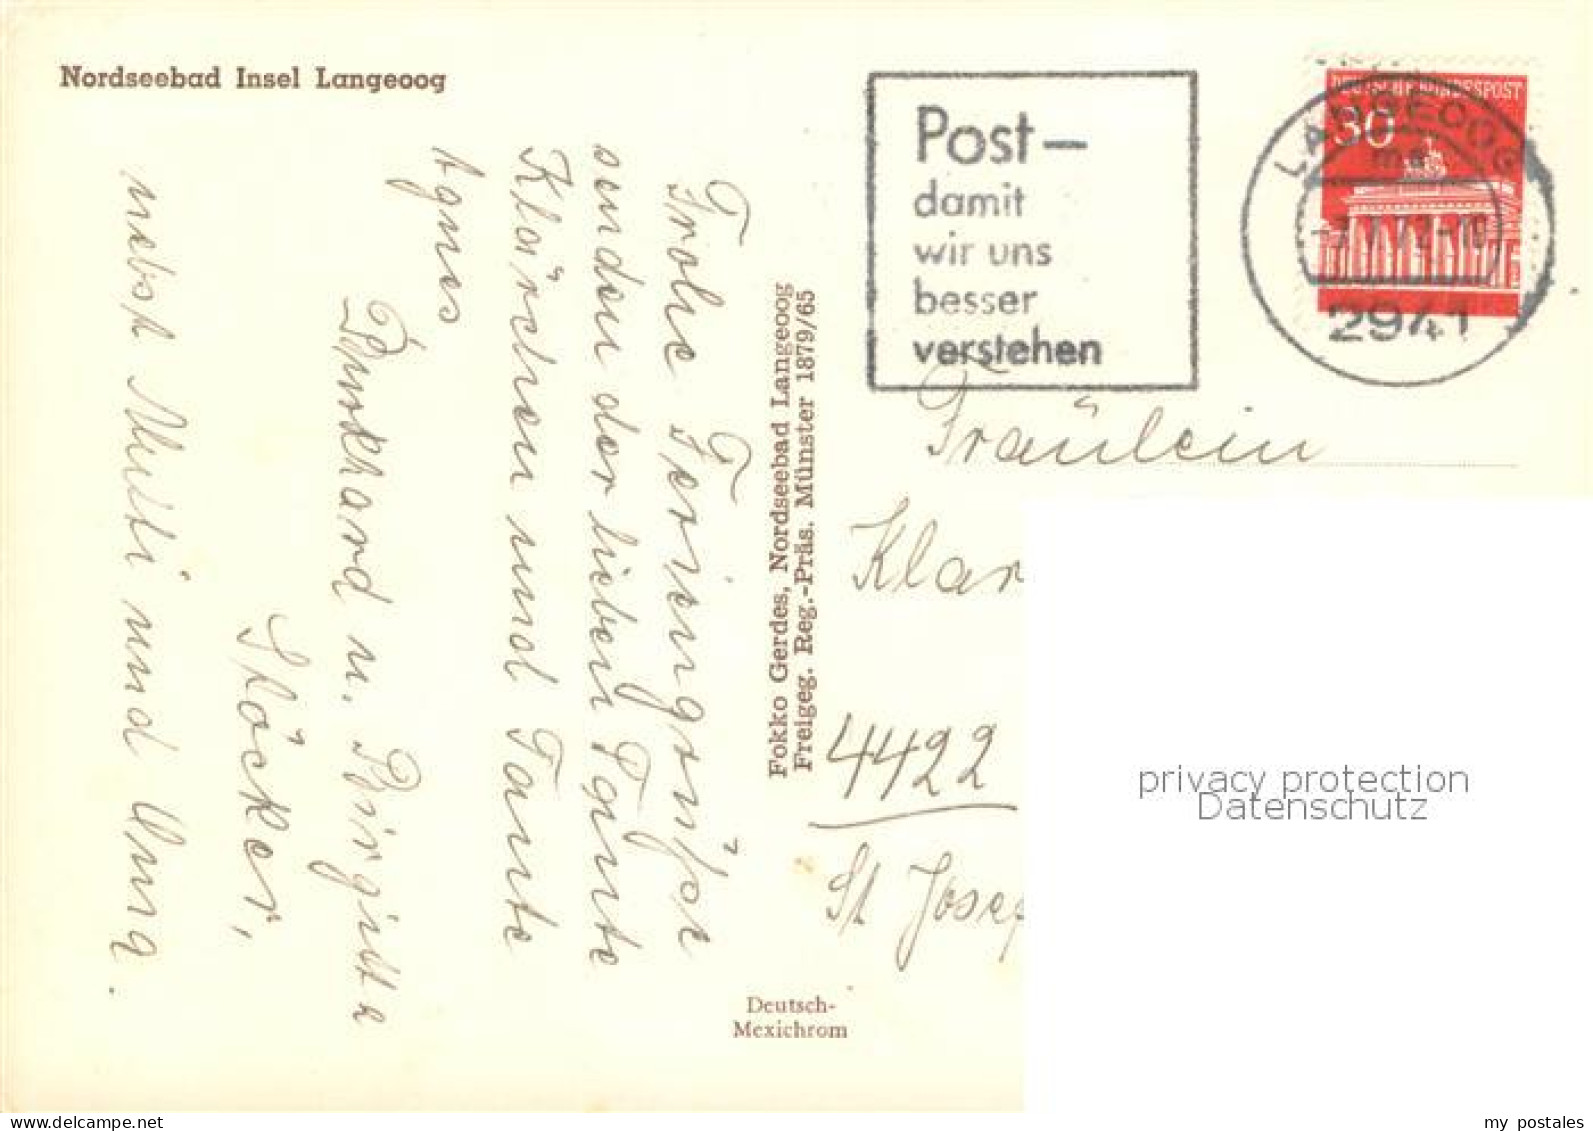 Nordseebad Insel Langeoog
Post–
damit
wir uns
besser
verstehen
DEUTSCHE BUNDESPOST
30
LANGEOOG
2941
Frohe Feriengrüße
senden der lieben Tante
Klärchen und Tante
Agnes
Burkhard u. Birgitta
Stöcker,
nebst Mutti und Oma.
Fokko Gerdes, Nordseebad Langeoog
Freigeg. Reg.-Präs. Münster 1879/65
Fräulein
Klar
4422
St Josef
Deutsch-
Mexichrom
privacy protection
Datenschutz
www.delcampe.net
my_postales